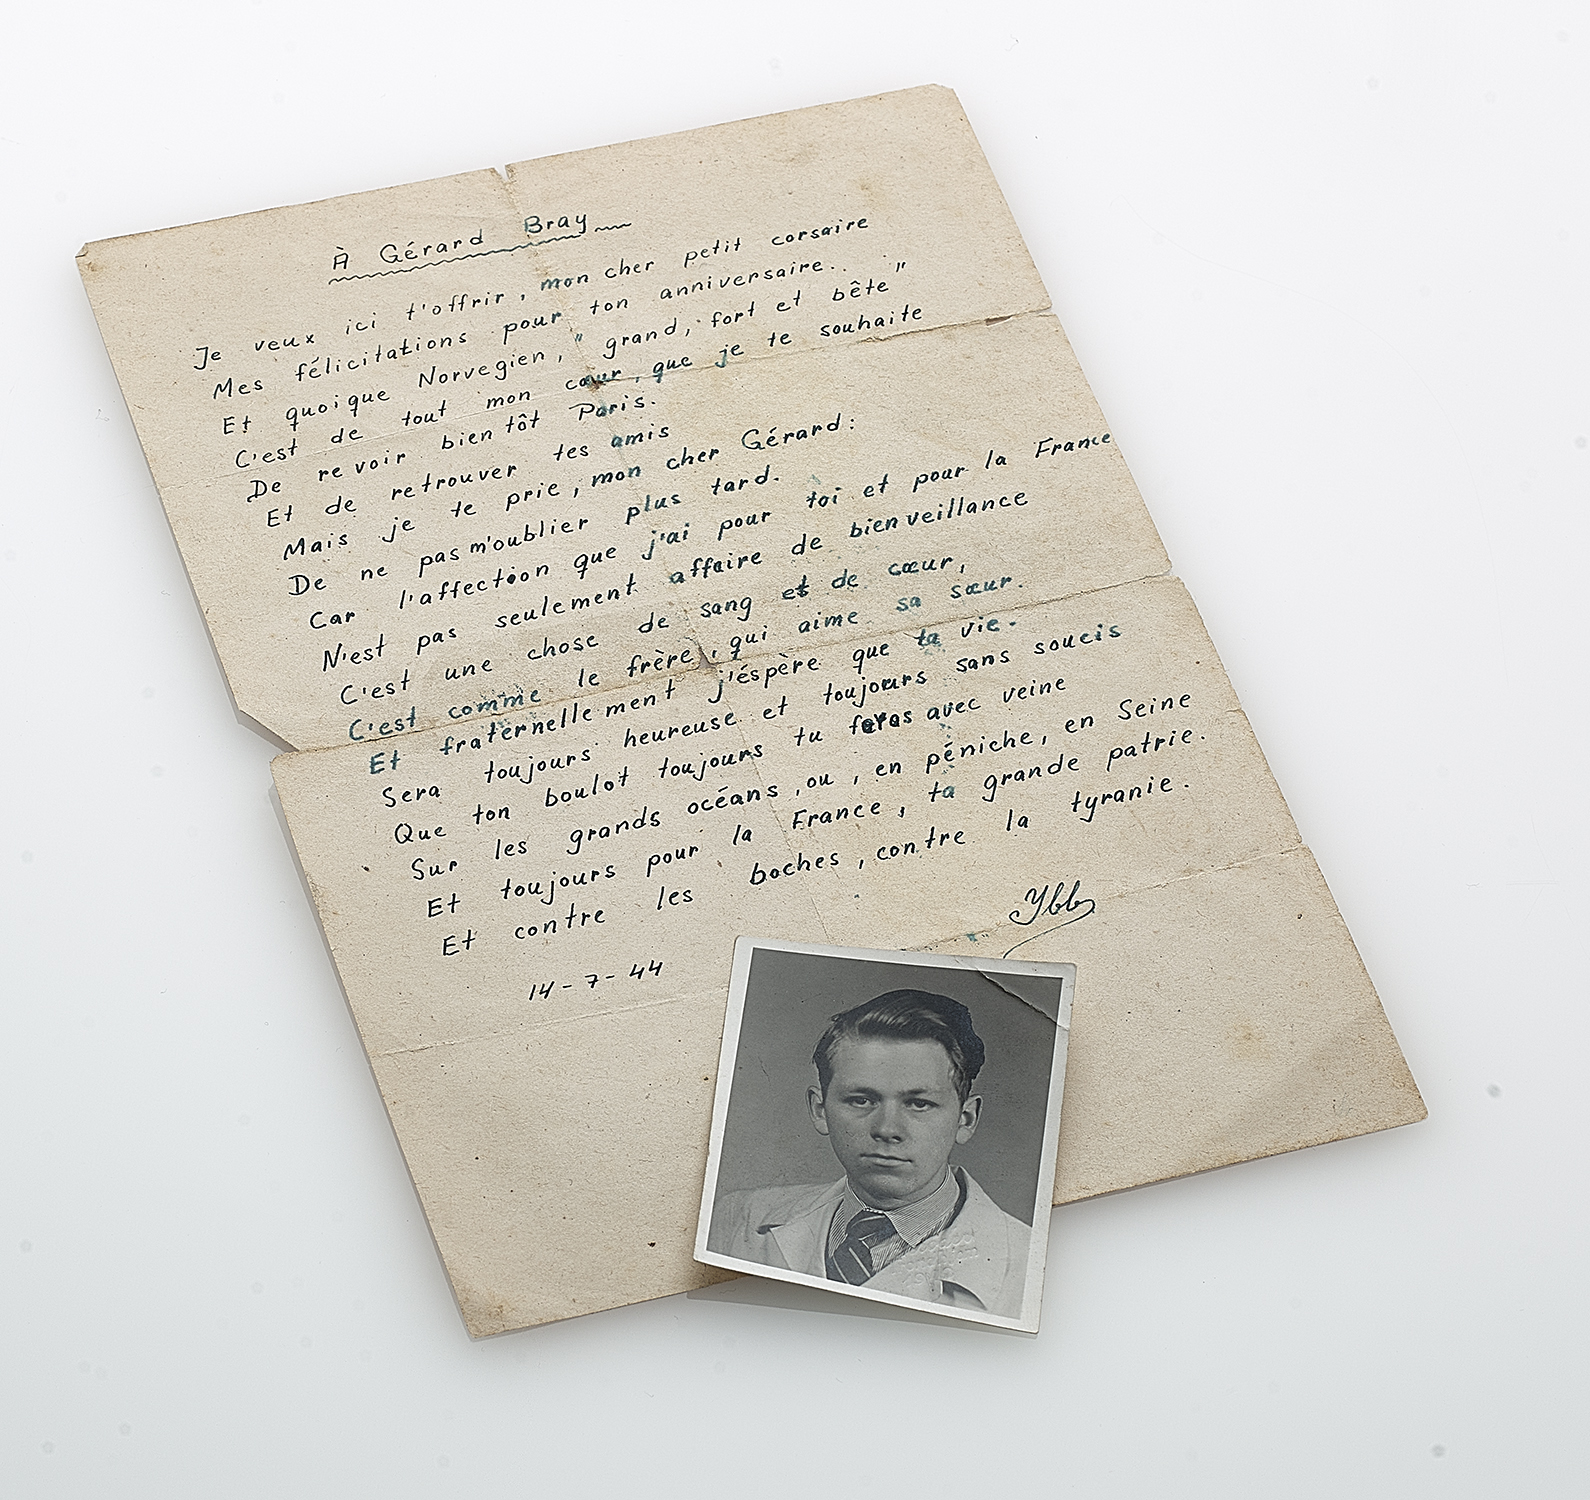 À Gérard Bray
Je veux ici t'offrir, mon cher petit corsaire
Mes félicitations pour ton anniversaire..
Et quoique Norvegien, "grand, fort et bête"
C'est de tout mon cœur, que je te souhaite
De revoir bientôt Paris.
Et de retrouver tes amis
Mais je te prie, mon cher Gérard:
De ne pas m'oublier plus tard.
Car l'affection que j'ai pour toi et pour la France
N'est pas seulement affaire de bienveillance
C'est une chose de sang et de cœur,
C'est comme le frère, qui aime sa sœur.
Et fraternellement j'éspère que ta vie.
Sera toujours heureuse et toujours sans soucis
Que ton boulot toujours tu feras avec veine
Sur les grands océans, ou, en péniche, en Seine
Et toujours pour la France, ta grande patrie.
Et contre les boches, contre la tyranie.
Ybb
14-7-44